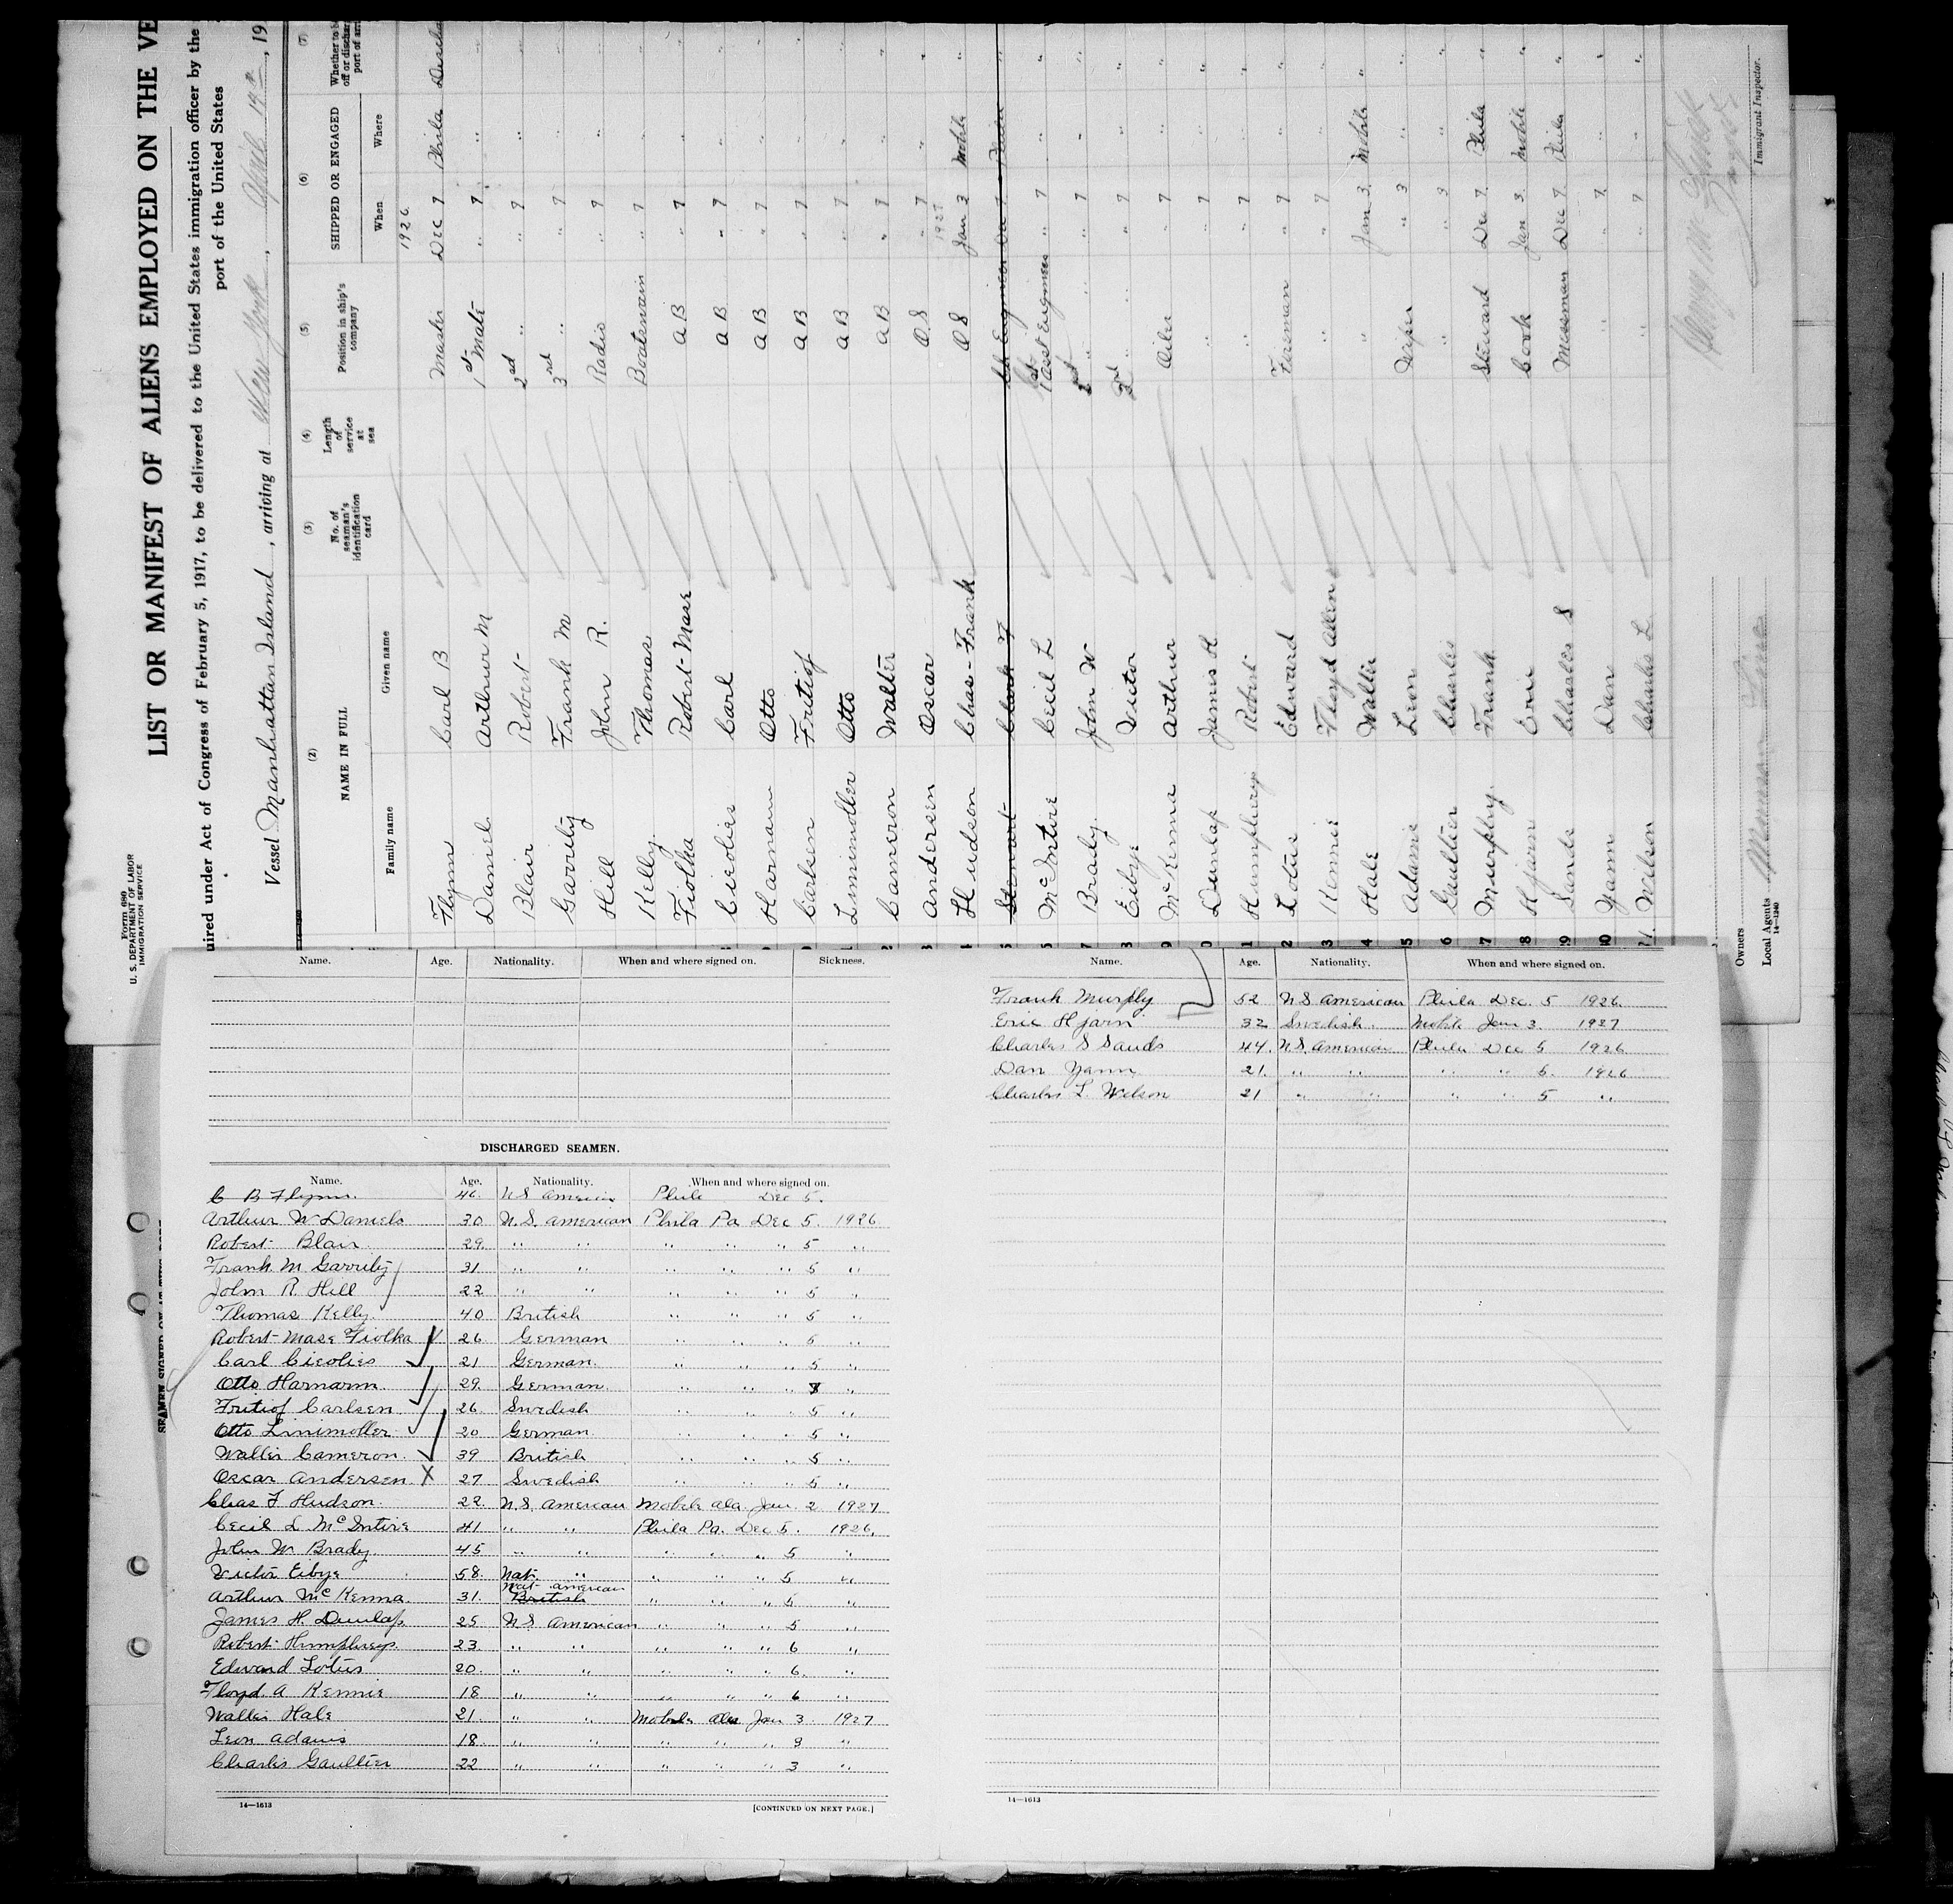 Form 680
U. S. DEPARTMENT OF LABOR
IMMIGRATION SERVICE
LIST OR MANIFEST OF ALIENS EMPLOYED ON THE VE
uired under Act of Congress of February 5, 1917, to be delivered to the United States immigration officer by the
port of the United States
Vessel Manhattan Island, arriving at New York, April 19th, 19
(2) (3) (4) (5) (6) (7)
NAME IN FULL No. of seaman's identification card Length of service at sea Position in ship's company SHIPPED OR ENGAGED Whether to b off or dischar port of arr
Family name Given name When Where
1926
Flynn Carl B Master Dec 7 Phila Discha
Daniel Arthur M 1st Mate " 7 " "
Blair Robert 2nd " " 7 " "
Garrity Frank M 3rd " " 7 " "
Hill John R. Radio " 7 " "
Kelly Thomas Boatswain " 7 " "
Fiolka Robert Mase A B " 7 " "
Cicolies Carl A B " 7 " "
Harmann Otto A B " 7 " "
Carlsen Fritiof A B " 7 " "
1 Linimoller Otto A B " 7 " "
2 Cameron Walter A B " 7 " "
3 Andersen Oscar O S " 7 " "
1927
4 Hudson Chas - Frank O S Jan 3 Mobile "
5 Stewart Clark F Ch Engineer Dec 7 "
6 McIntire Cecil L 1st Asst Engineer " 7 " "
7 Brady John W 2nd " " " 7 " "
8 Eibye Victor 3rd " " " 7 " "
9 McKenna Arthur Oiler " 7 " "
0 Dunlap James H " " 7 " "
1 Humphreys Robert " " 7 " "
2 Lotus Edward Fireman " 7 " "
3 Kennie Floyd Allen " " 7 " "
4 Hale Wallie " Jan 3 Mobile "
5 Adams Leon Wiper " 3 " "
6 Gaultier Charles " " 3 " "
7 Murphy Frank Steward Dec 7 Phila "
8 Hjarn Eric Cook Jan 3 Mobile "
9 Sands Charles S Messman Dec 7 Phila "
30 Yann Dan " " 7 " "
31 Wilson Charles L " " 7 " "
Owners
Local Agents Munson Line
14-1240
Immigrant Inspector.
Name. Age. Nationality. When and where signed on. Sickness.
DISCHARGED SEAMEN.
Name. Age. Nationality. When and where signed on.
C B Flynn. 46. U.S. American Phila Dec 5.
Arthur W Daniels 30 U.S. American Phila Pa Dec 5. 1926
Robert Blair 29. " " " " " 5 "
Frank M Garrity 31 " " " " " 5 "
John R. Hill 22 " " " " " 5 "
Thomas Kelly 40 British " " " 5 "
Robert Mase Fiolka 26 German " " " 5 "
Carl Cicolies 21 German. " " " 5 "
Otto Harmann 29. German. " " " 8 "
Fritiof Carlsen 26 Swedish " " " 5 "
Otto Linimoller 20 German " " " 5 "
Walter Cameron. 39 British " " " 5 "
Oscar Andersen X 27 Swedish " " " 5 "
Chas F Hudson. 22. U.S. American Mobile Ala. Jan. 2 1927
Cecil L McIntire 41 " " Phila Pa. Dec 5. 1926.
John W. Brady 45 " " " " " 5 "
Victor Eibye 58. Nat. " " " " 5 "
Nat- American
Arthur McKenna. 31. British " " " 5 "
James H. Dunlap 25 U S American " " " 5 "
Robert Humphreys. 23 " " " " " 6 "
Edward Lotus 20. " " " " " 6. "
Floyd. A Kennie 18 " " " " " 6 "
Wallie Hale 21. " " Mobile Ala Jan 3. 1927
Leon Adams 18. " " " " " 3 "
Charles Gaultier 22 " " " " " 3 "
14—1613
[CONTINUED ON NEXT PAGE.]
Name. Age. Nationality. When and where signed on.
Frank Murphy 52 U S American Phila Dec. 5 1926.
Eric Hjarn 32 Swedish. Mobile Jan 3. 1927
Charles S Sands 44. U.S. American Phila Dec 5 1926
Dan Yann 21. " " " " 6. 1926
Charles L. Wilson 21 " " " " 5 "
14—1613